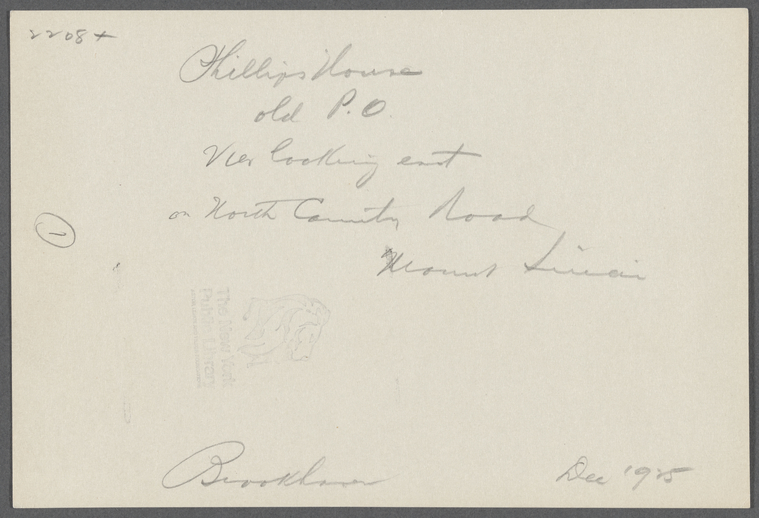 2208+
Phillips House
old P.O.
View looking east
on North Country Road
Mount Sinai
1
The New York
Public Library
Brookhaven
Dec 1925